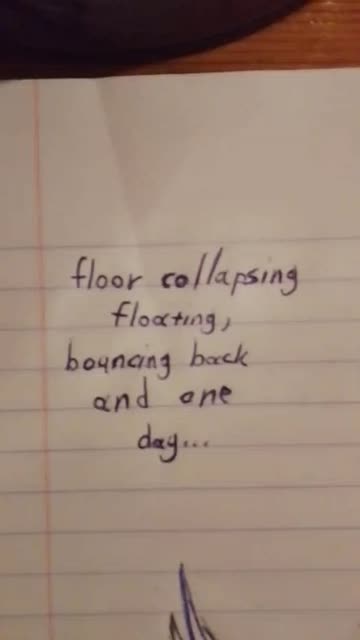 floor collapsing
floating,
bouncing back
and one
day...